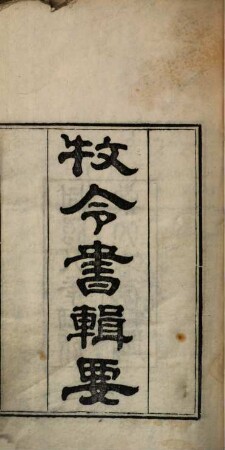 牧令書輯要